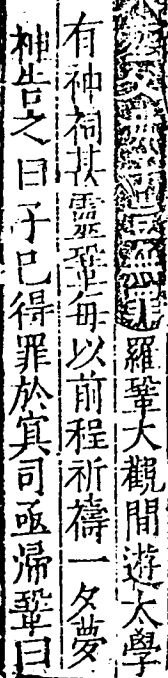 葬父母無罪羅鞏大觀間遊太學
有神祠甚靈鞏每以前程祈禱一夕夢
神告之曰子已得罪於冥司亟歸鞏曰